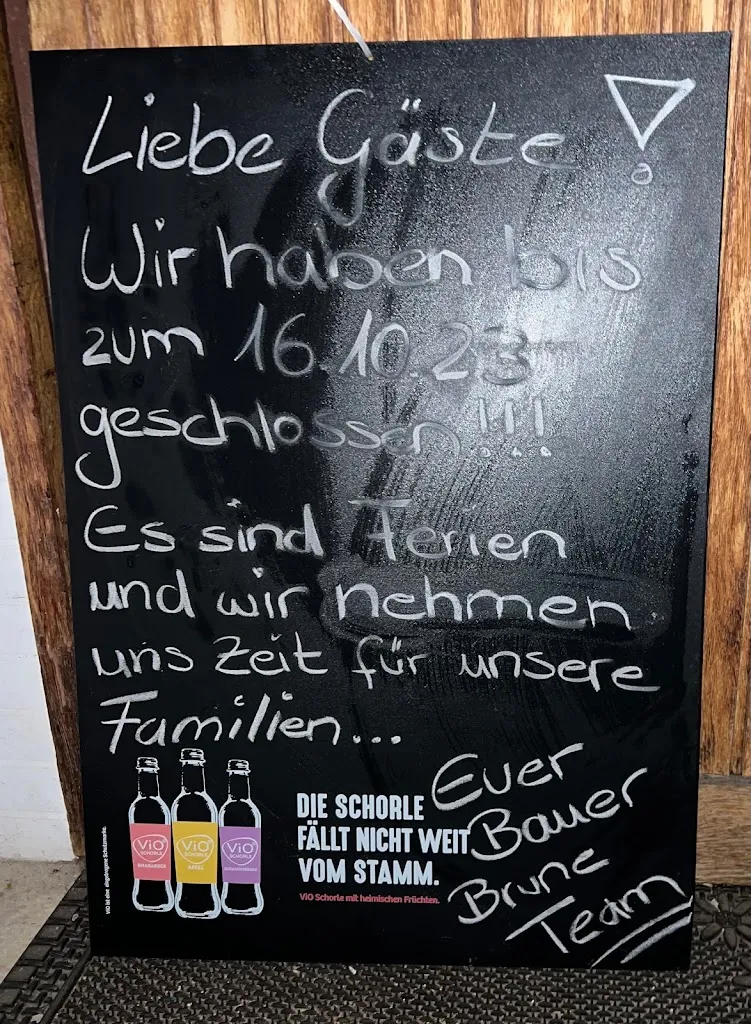 Liebe Gäste!
Wir haben bis
zum 16.10.23
geschlossen!!!
Es sind Ferien
und wir nehmen
uns Zeit für unsere
Familien...
Euer
Bauer
Brune
Team
DIE SCHORLE
FÄLLT NICHT WEIT
VOM STAMM.
ViO Schorle mit heimischen Früchten.
ViO
SCHORLE
RHABARBER
ViO
SCHORLE
APFEL
ViO
SCHORLE
ViO ist eine eingetragene Schutzmarke.